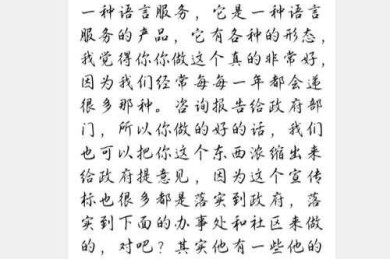 一种语言服务，它是一种语言
服务的产品，它有各种的形态，
我觉得你你做这个真的非常好，
因为我们经常每每一年都会递
很多那种。咨询报告给政府部
门，所以你做的好的话，我们
也可以把你这个东西浓缩出来
给政府提意见，因为这个宣传
标也很多都是落实到政府，落
实到下面的办事处和社区来做
的，对吧？其实他有一些他的